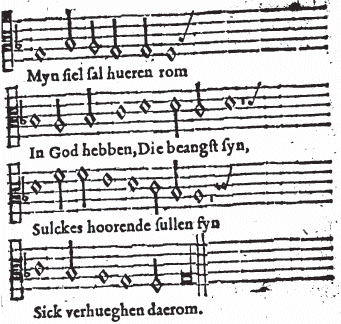 Myn ſiel ſal hueren rom
In God hebben, Die beangſt ſyn,
Sulckes hoorende ſullen ſyn
Sick verhueghen daerom.